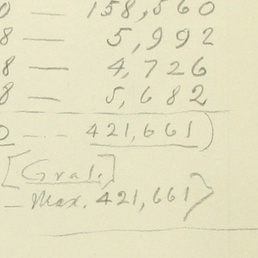 0 — 158,560
8 — 5,992
8 — 4,726
8 — 5,682
0 -- 421,661)
[Gral.]
— Max. 421,661